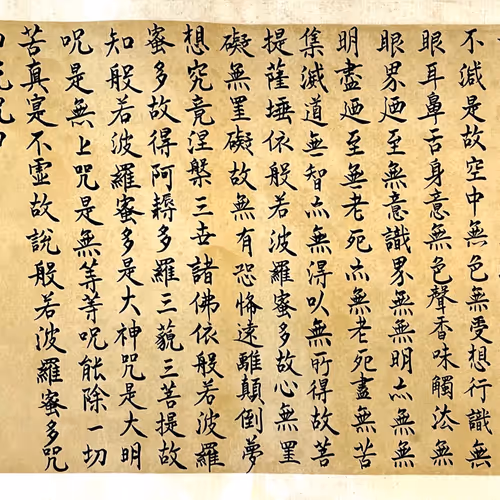 不減是故空中無色無受想行識無
眼耳鼻舌身意無色聲香味觸法無
眼界廼至無意識界無無明亦無無
明盡廼至無老死亦無老死盡無苦
集滅道無智亦無得以無所得故菩
提薩埵依般若波羅蜜多故心無罣
礙無罣礙故無有恐怖遠離顛倒夢
想究竟涅槃三世諸佛依般若波羅
蜜多故得阿耨多羅三藐三菩提故
知般若波羅蜜多是大神咒是大明
咒是無上咒是無等等咒能除一切
苦真寔不虛故說般若波羅蜜多咒